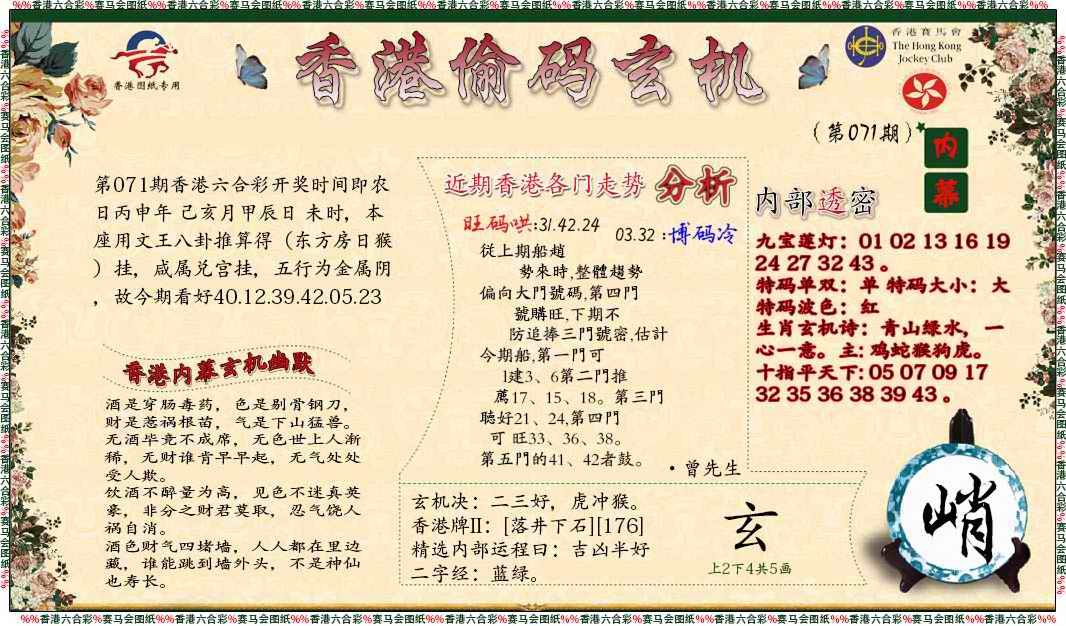 %%香港六合彩%赛马会图纸%%香港六合彩%赛马会图纸%%香港六合彩%赛马会图纸%%香港六合彩%赛马会图纸%%香港六合彩%赛马会图纸%%香港六合彩%赛马会图纸%%香港六合彩%赛马会图纸%%
香港图纸专用
香港偷码玄机
香港賽馬會
The Hong Kong
Jockey Club
(第071期)
内
幕
第071期香港六合彩开奖时间即农
日丙申年 己亥月甲辰日 未时，本
座用文王八卦推算得（东方房日猴
）挂，咸属兑宫挂，五行为金属阴
，故今期看好40.12.39.42.05.23
香港内幕玄机幽默
酒是穿肠毒药，色是剔骨钢刀，
财是惹祸根苗，气是下山猛兽。
无酒毕竟不成席，无色世上人渐
稀，无财谁肯早早起，无气处处
受人欺。
饮酒不醉量为高，见色不迷真英
豪，非分之财君莫取，忍气饶人
祸自消。
酒色财气四堵墙，人人都在里边
藏，谁能跳到墙外头，不是神仙
也寿长。
近期香港各门走势 分析
旺码哄:31.42.24
03.32 :博码冷
従上期船趙
勢來時,整體趨勢
偏向大門號碼,第四門
號購旺,下期不
防追捧三門號密,估計
今期船,第一門可
1建3、6第二門推
薦17、15、18。第三門
聴好21、24,第四門
可 旺33、36、38。
第五門的41、42者鼓。
·曾先生
玄机决：二三好，虎冲猴。
香港牌II：[落井下石][176]
精选内部运程曰：吉凶半好
二字经：蓝绿。
玄
上2下4共5画
内部透密
九宝莲灯：01 02 13 16 19
24 27 32 43 。
特码单双：单 特码大小：大
特码波色：红
生肖玄机诗：青山绿水，一
心一意。主: 鸡蛇猴狗虎。
十指平天下: 05 07 09 17
32 35 36 38 39 43 。
峭
%%香港六合彩%赛马会图纸%%香港六合彩%赛马会图纸%%香港六合彩%赛马会图纸%%香港六合彩%赛马会图纸%%香港六合彩%赛马会图纸%%香港六合彩%赛马会图纸%%香港六合彩%赛马会图纸%%